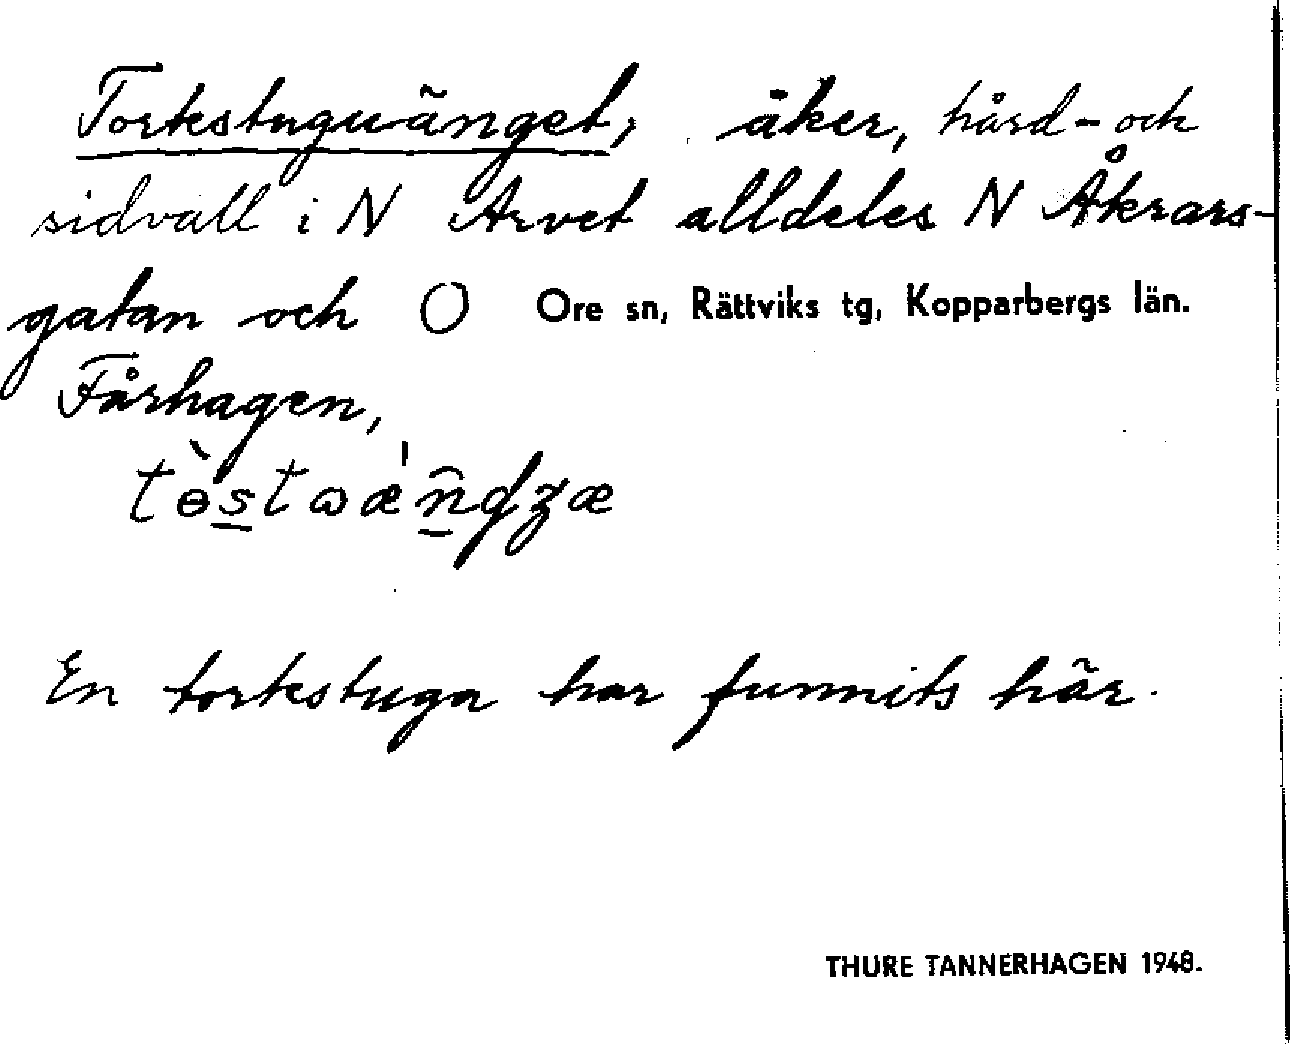 Torkstuguänget, åker, hård- och
sidvall i N Arvet alldeles N Åkrars-
gatan och O Ore sn, Rättviks tg, Kopparbergs län.
Fårhagen,
En torkstuga har funnits här.
THURE TANNERHAGEN 1948.